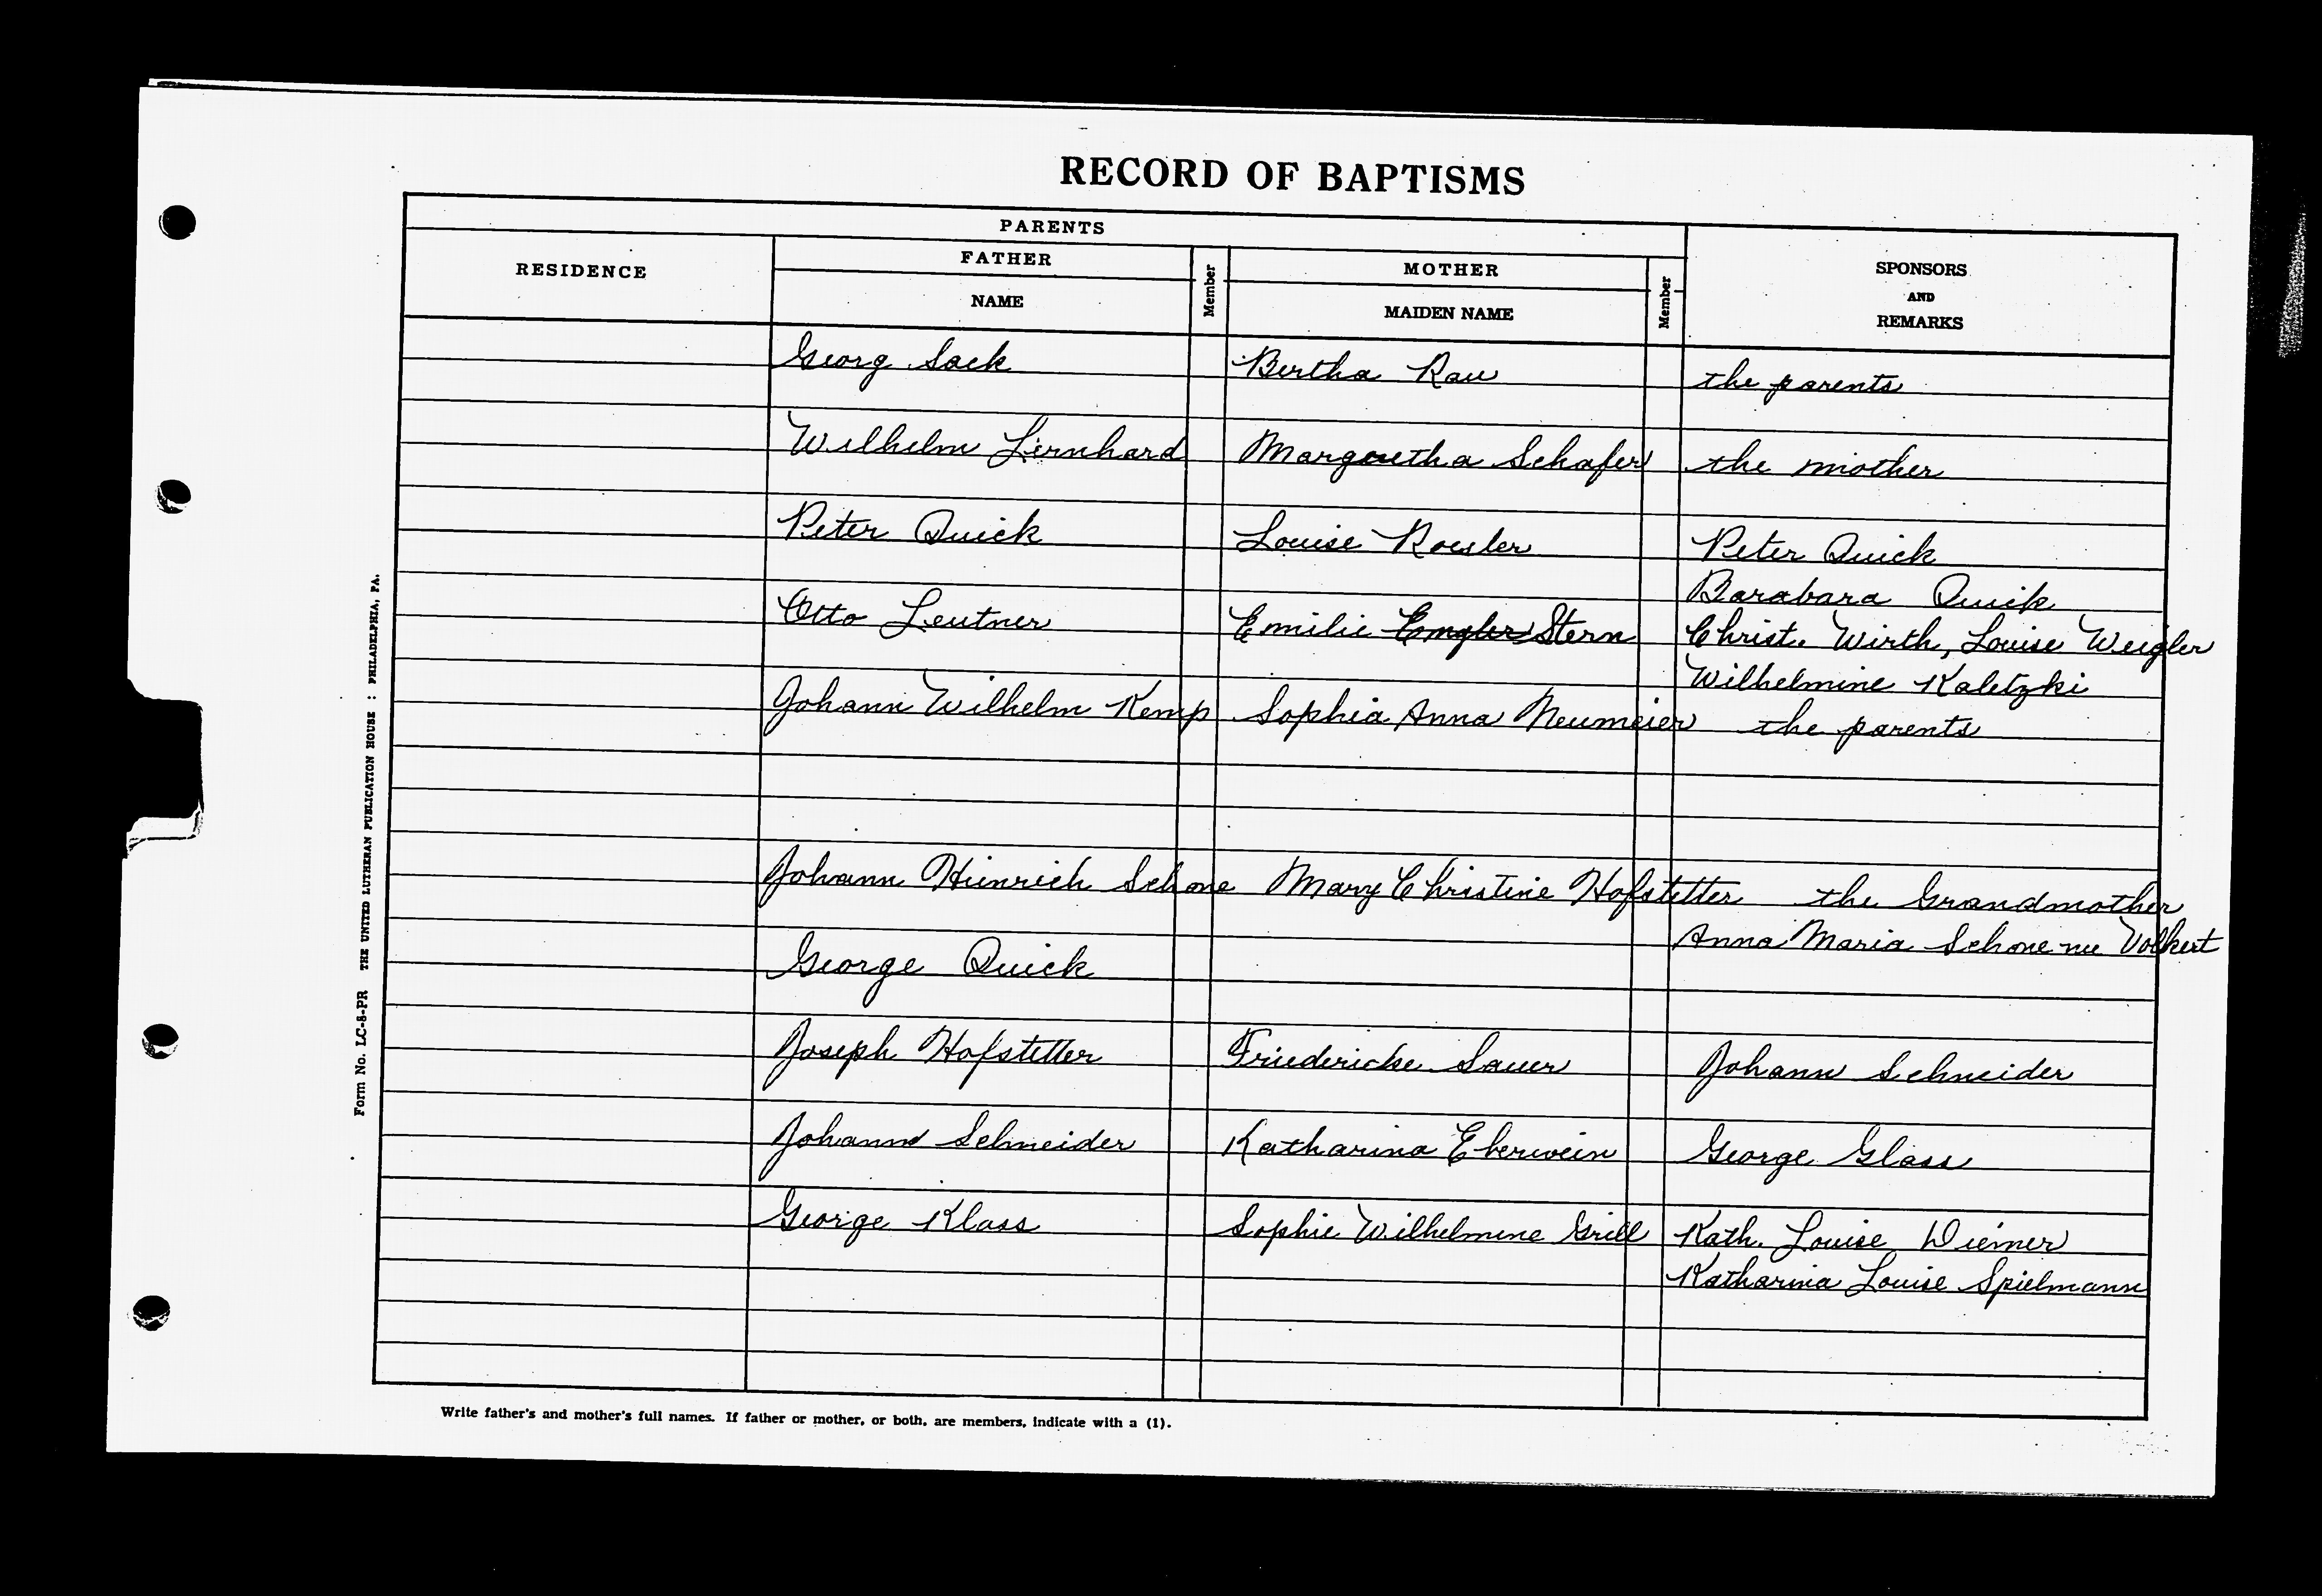 RECORD OF BAPTISMS
PARENTS
RESIDENCE
FATHER
NAME
Member
MOTHER
MAIDEN NAME
Member
SPONSORS
AND
REMARKS
Georg Sack Bertha Rau the parents
Wilhelm Lernhard Margaretha Schafer the mother
Peter Quick Louise Roesler Peter Quick
Barabara Quick
Otto Leutner Emilie Engler Stern Christ. Wirth, Louise Weigler
Wilhelmine Kaletzki
Johann Wilhelm Kemp Sophia Anna Neumeier the parents
Johann Heinrich Schone Mary Christine Hofstetter the Grandmother
Anna Maria Schone nee Volkert
George Quick
Joseph Hofstetter Friedericke Sauer Johann Schneider
Johann Schneider Katharina Eberwein George Glass
George Klass Sophie Wilhelmine Grill Kath. Louise Diemer
Katharina Louise Spielmann
Write father's and mother's full names. If father or mother, or both, are members, indicate with a (1).
Form No. LC-8-PR THE UNITED LUTHERAN PUBLICATION HOUSE : PHILADELPHIA, PA.